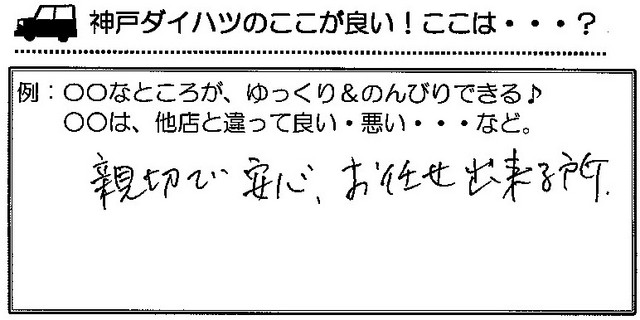 神戸ダイハツのここが良い！ここは・・・？
例：〇〇なところが、ゆっくり＆のんびりできる♪
〇〇は、他店と違って良い・悪い・・・など。
親切で安心、お任せ出来る所.